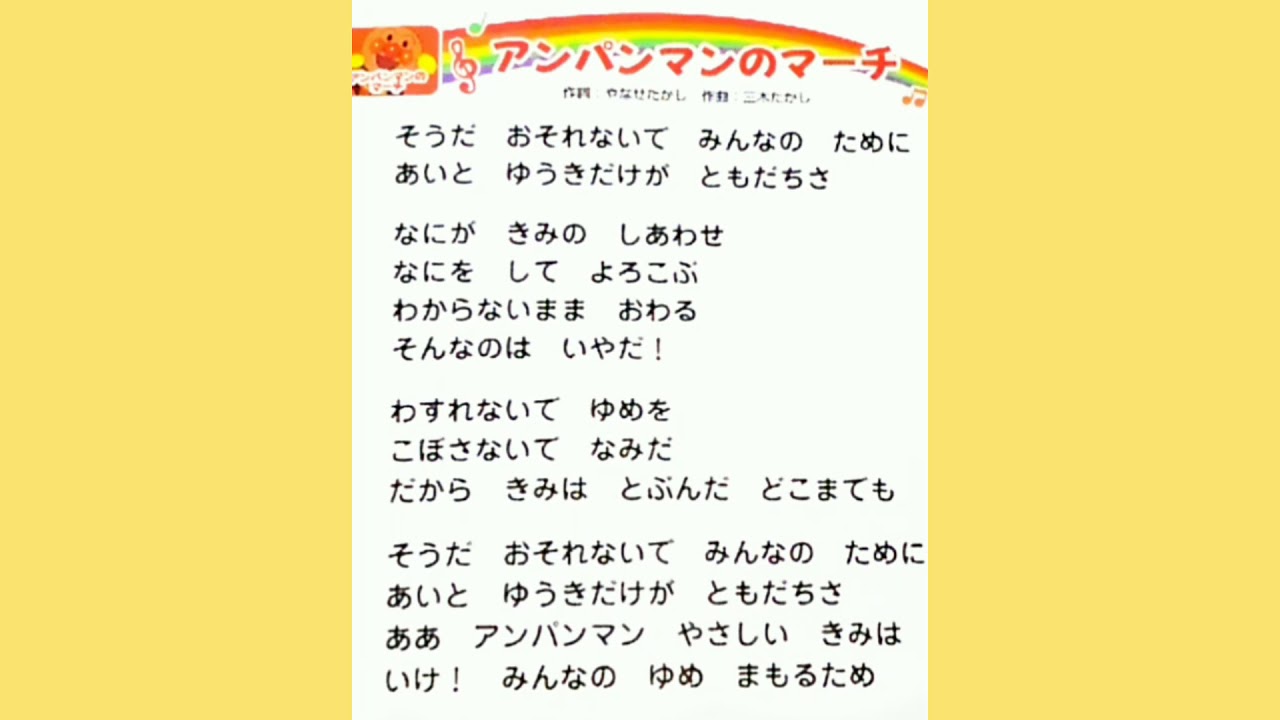 アンパンマンの
マーチ
アンパンマンのマーチ
作詞：やなせたかし　作曲：三木たかし
そうだ　おそれないで　みんなの　ために
あいと　ゆうきだけが　ともだちさ
なにが　きみの　しあわせ
なにを　して　よろこぶ
わからないまま　おわる
そんなのは　いやだ！
わすれないで　ゆめを
こぼさないで　なみだ
だから　きみは　とぶんだ　どこまでも
そうだ　おそれないで　みんなの　ために
あいと　ゆうきだけが　ともだちさ
ああ　アンパンマン　やさしい　きみは
いけ！　みんなの　ゆめ　まもるため